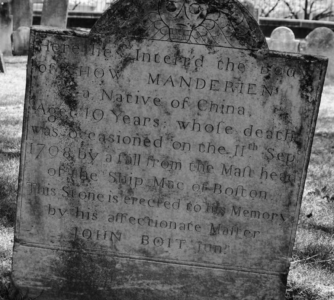 Here lies Interr'd the Body
of CHOW MANDERIEN
a Native of China,
Aged 19 Years, whose death
was occasioned on the 11th Sep
1798 by a fall from the Mast head
of the Ship Mac of Boston.
This Stone is erected to his Memory
by his affectionate Master
JOHN BOIT Jun